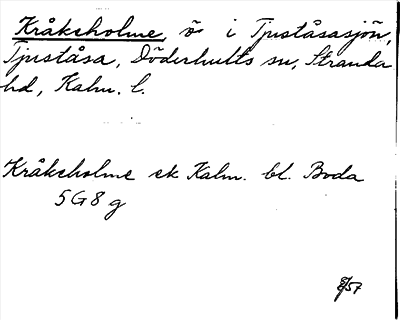 Kråkeholme, ö i Tjuståsasjön,
Tjuståsa, Döderhults sn, Stranda
hd, Kalm. l.
Kråkeholme ek Kalm. bl. Boda
5G8g
8/57